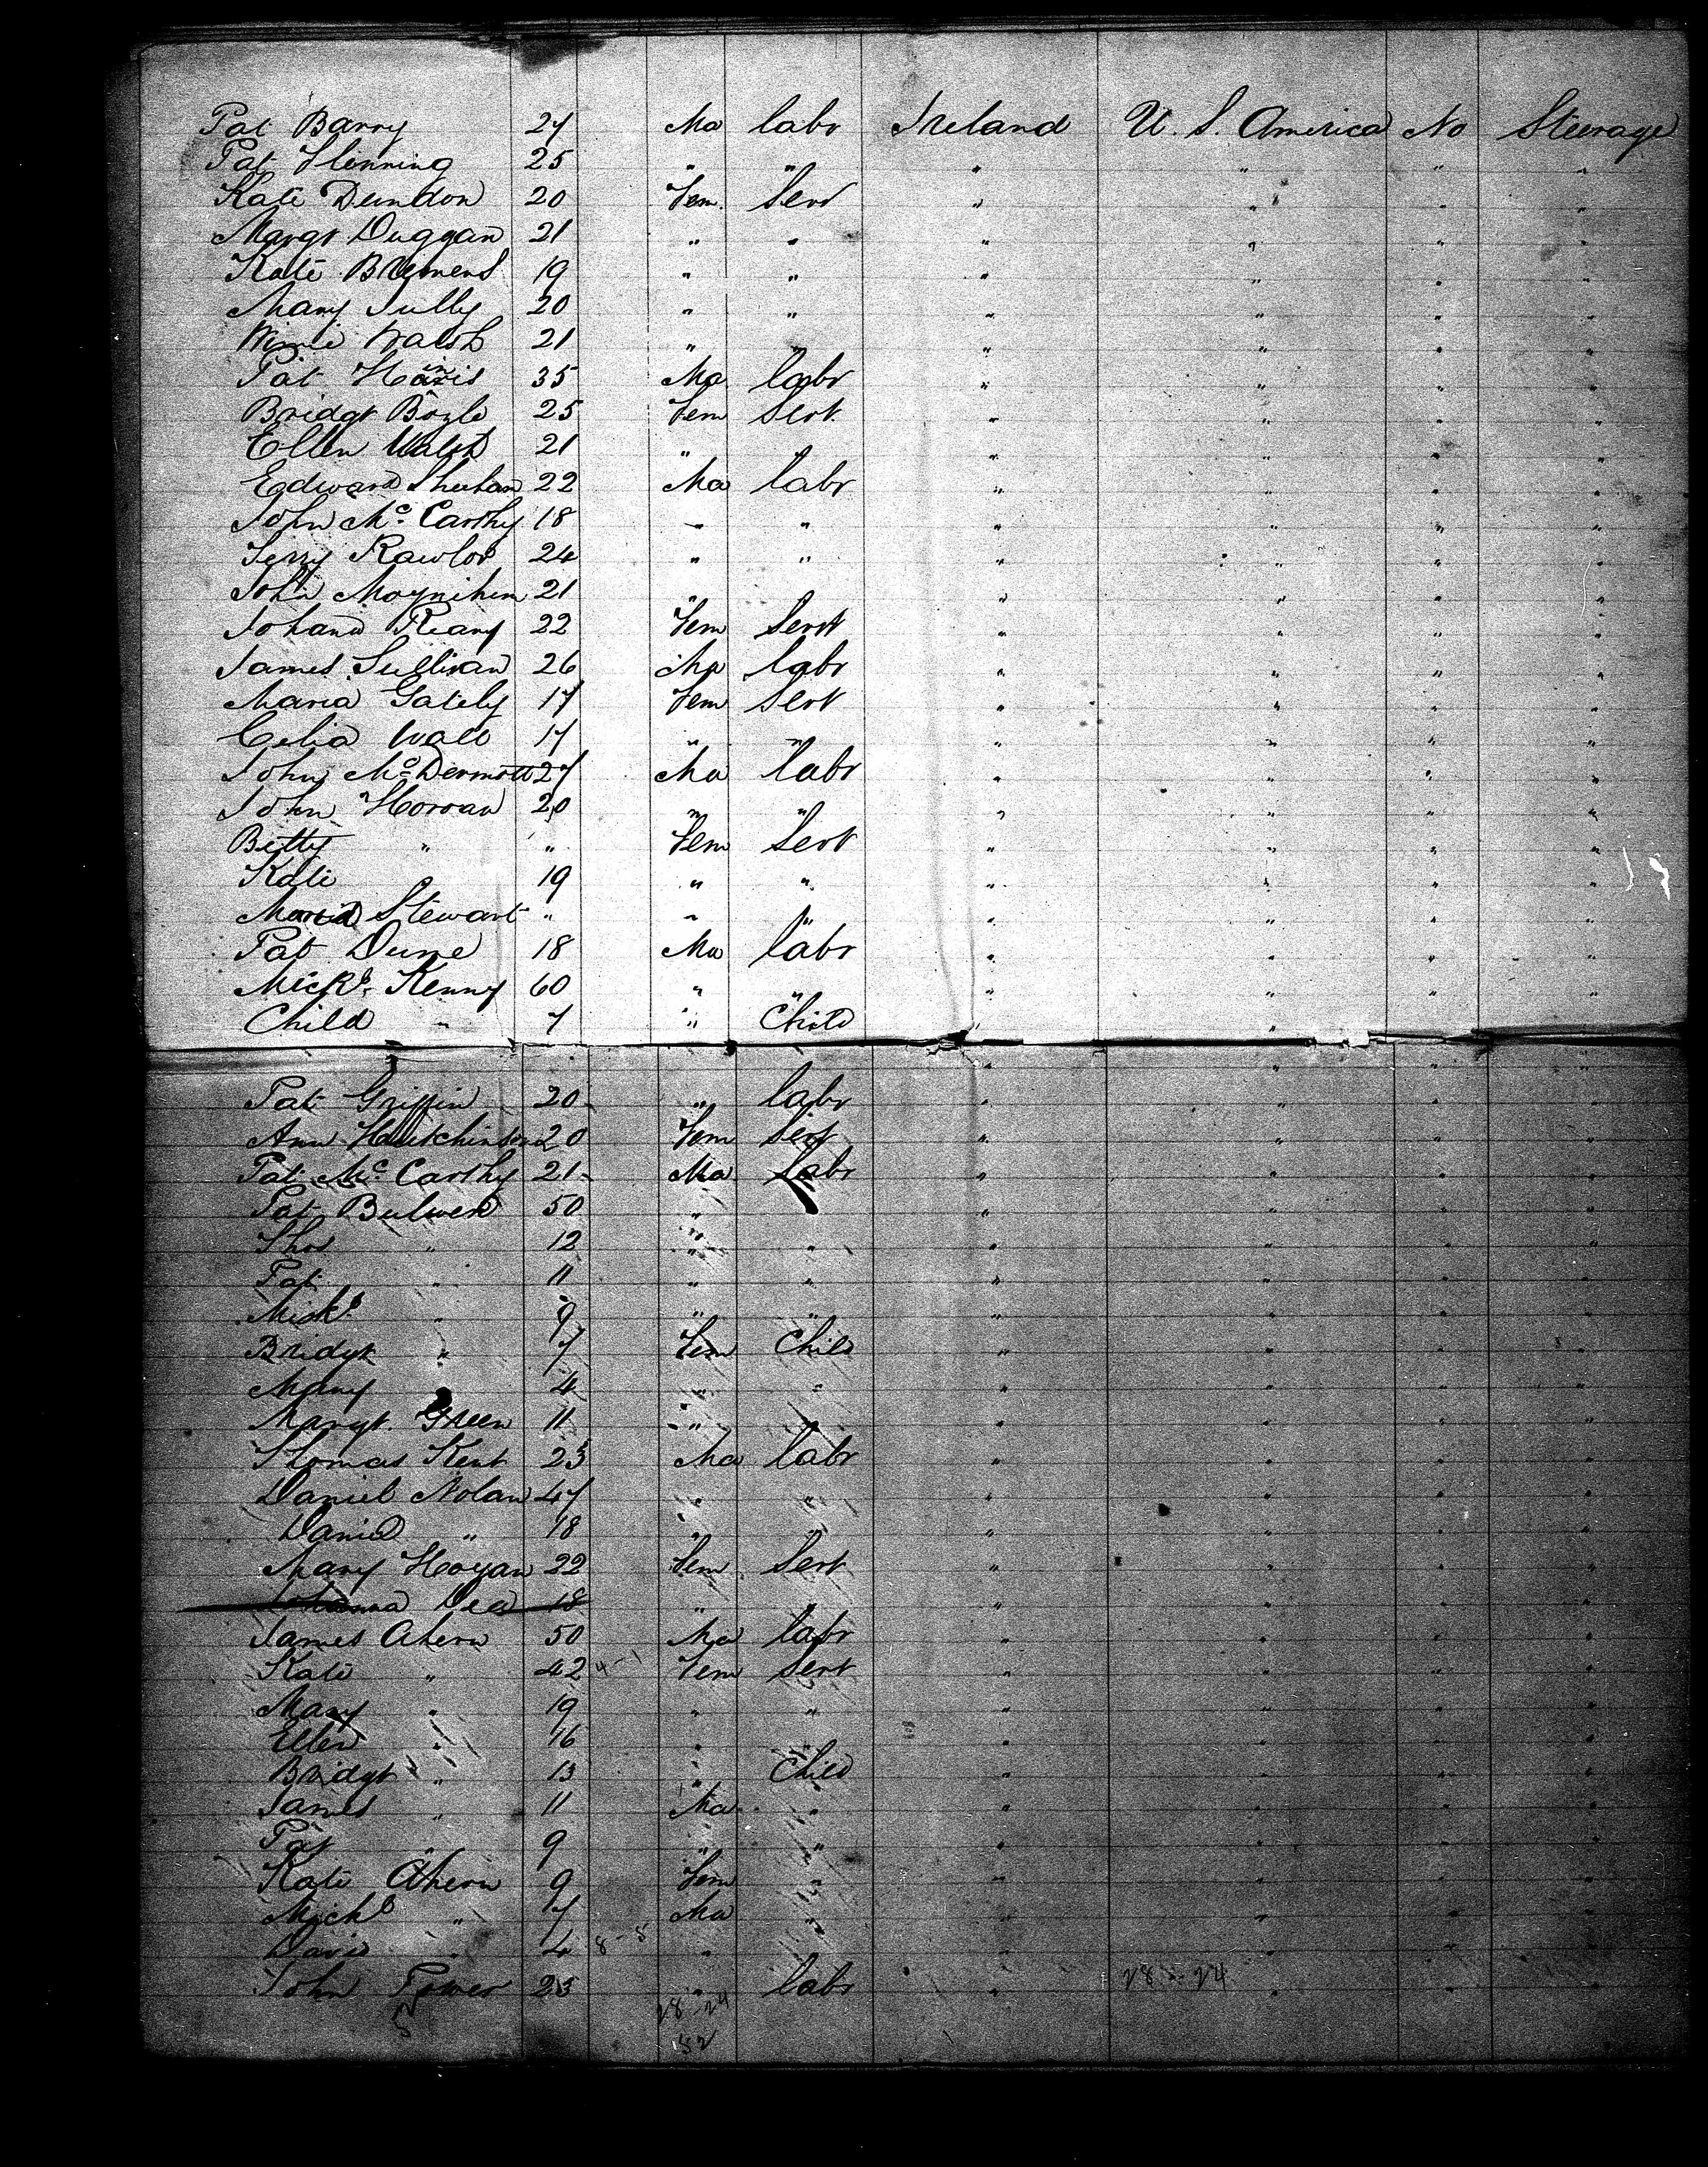 Pat Barry 27 Ma labr Ireland U. S. America No Steerage
Pat Flenning 25 " " " " " "
Kate Dundon 20 Fem. Serv " " " "
Margt Duggan 21 " " " " " "
Kate 19 " " " " " "
Mary Tully 20 " " " " " "
Winnie Walsh 21 " " " " " "
Pat 35 Ma labr " " " "
Bridgt Boyle 25 Fem Servt. " " " "
Ellen Walsh 21 " " " " "
Edward Sheehan 22 Ma labr " " " "
John Mc. Carthy 18 " " " " " "
Jerry Rawlor 24 " " " " " "
John Moynihan 21 " " " " "
Johana Reany 22 Fem Servt " " " "
James Sullivan 26 Ma labr " " " "
Maria Gately 17 Fem Servt " " " "
Celia Wall 17 " " " " " "
John McDermott 27 Ma labr " " " "
John Horoan 20 " " " " " "
Betty " " Fem Servt " " " "
Kate " 19 " " " " " "
Maria Stewart " " " " " " "
Pat Dunne 18 Ma labr " " " "
Mickl. Kenny 60 " " " " " "
Child " 7 " Child " " " "
Pat Griffin 20 " labr " " " "
Ann Hutchinson 20 Fem Servt " " " "
Pat Mc. Carthy 21 Ma labr " " " "
Pat 50 " " " " "
Thos " 12 " " " " " "
Pat " 11 " " " " "
Mickl. " 9 " " " " " "
Bridgt " 7 Fem Child " " " "
Mary " 4 " " " " " "
Margt. Green 11 " " " " " "
Thomas Kent 25 Ma labr " " " "
Daniel Nolan 47 " " " " " "
Daniel " 18 " " " " " "
Mary Hogan 22 Fem Servt " " " "
Johanna Dea 18 " " " " " "
James Ahern 50 Ma labr " " " "
Kate " 42 4-1 Fem Servt " " " "
Mary " 19 " " " " " "
Ellen " 16 " " " " " "
Bridgt " 13 " Child " " " "
James " 11 Ma " " " " "
Pat " 9 " " " " " "
Kate Ahern 9 Fem " " " " "
Mickl " 7 Ma " " " " "
David " 4 8-5 " " " " "
John Power 23 " labr " 28-24 " " "
28-24
52